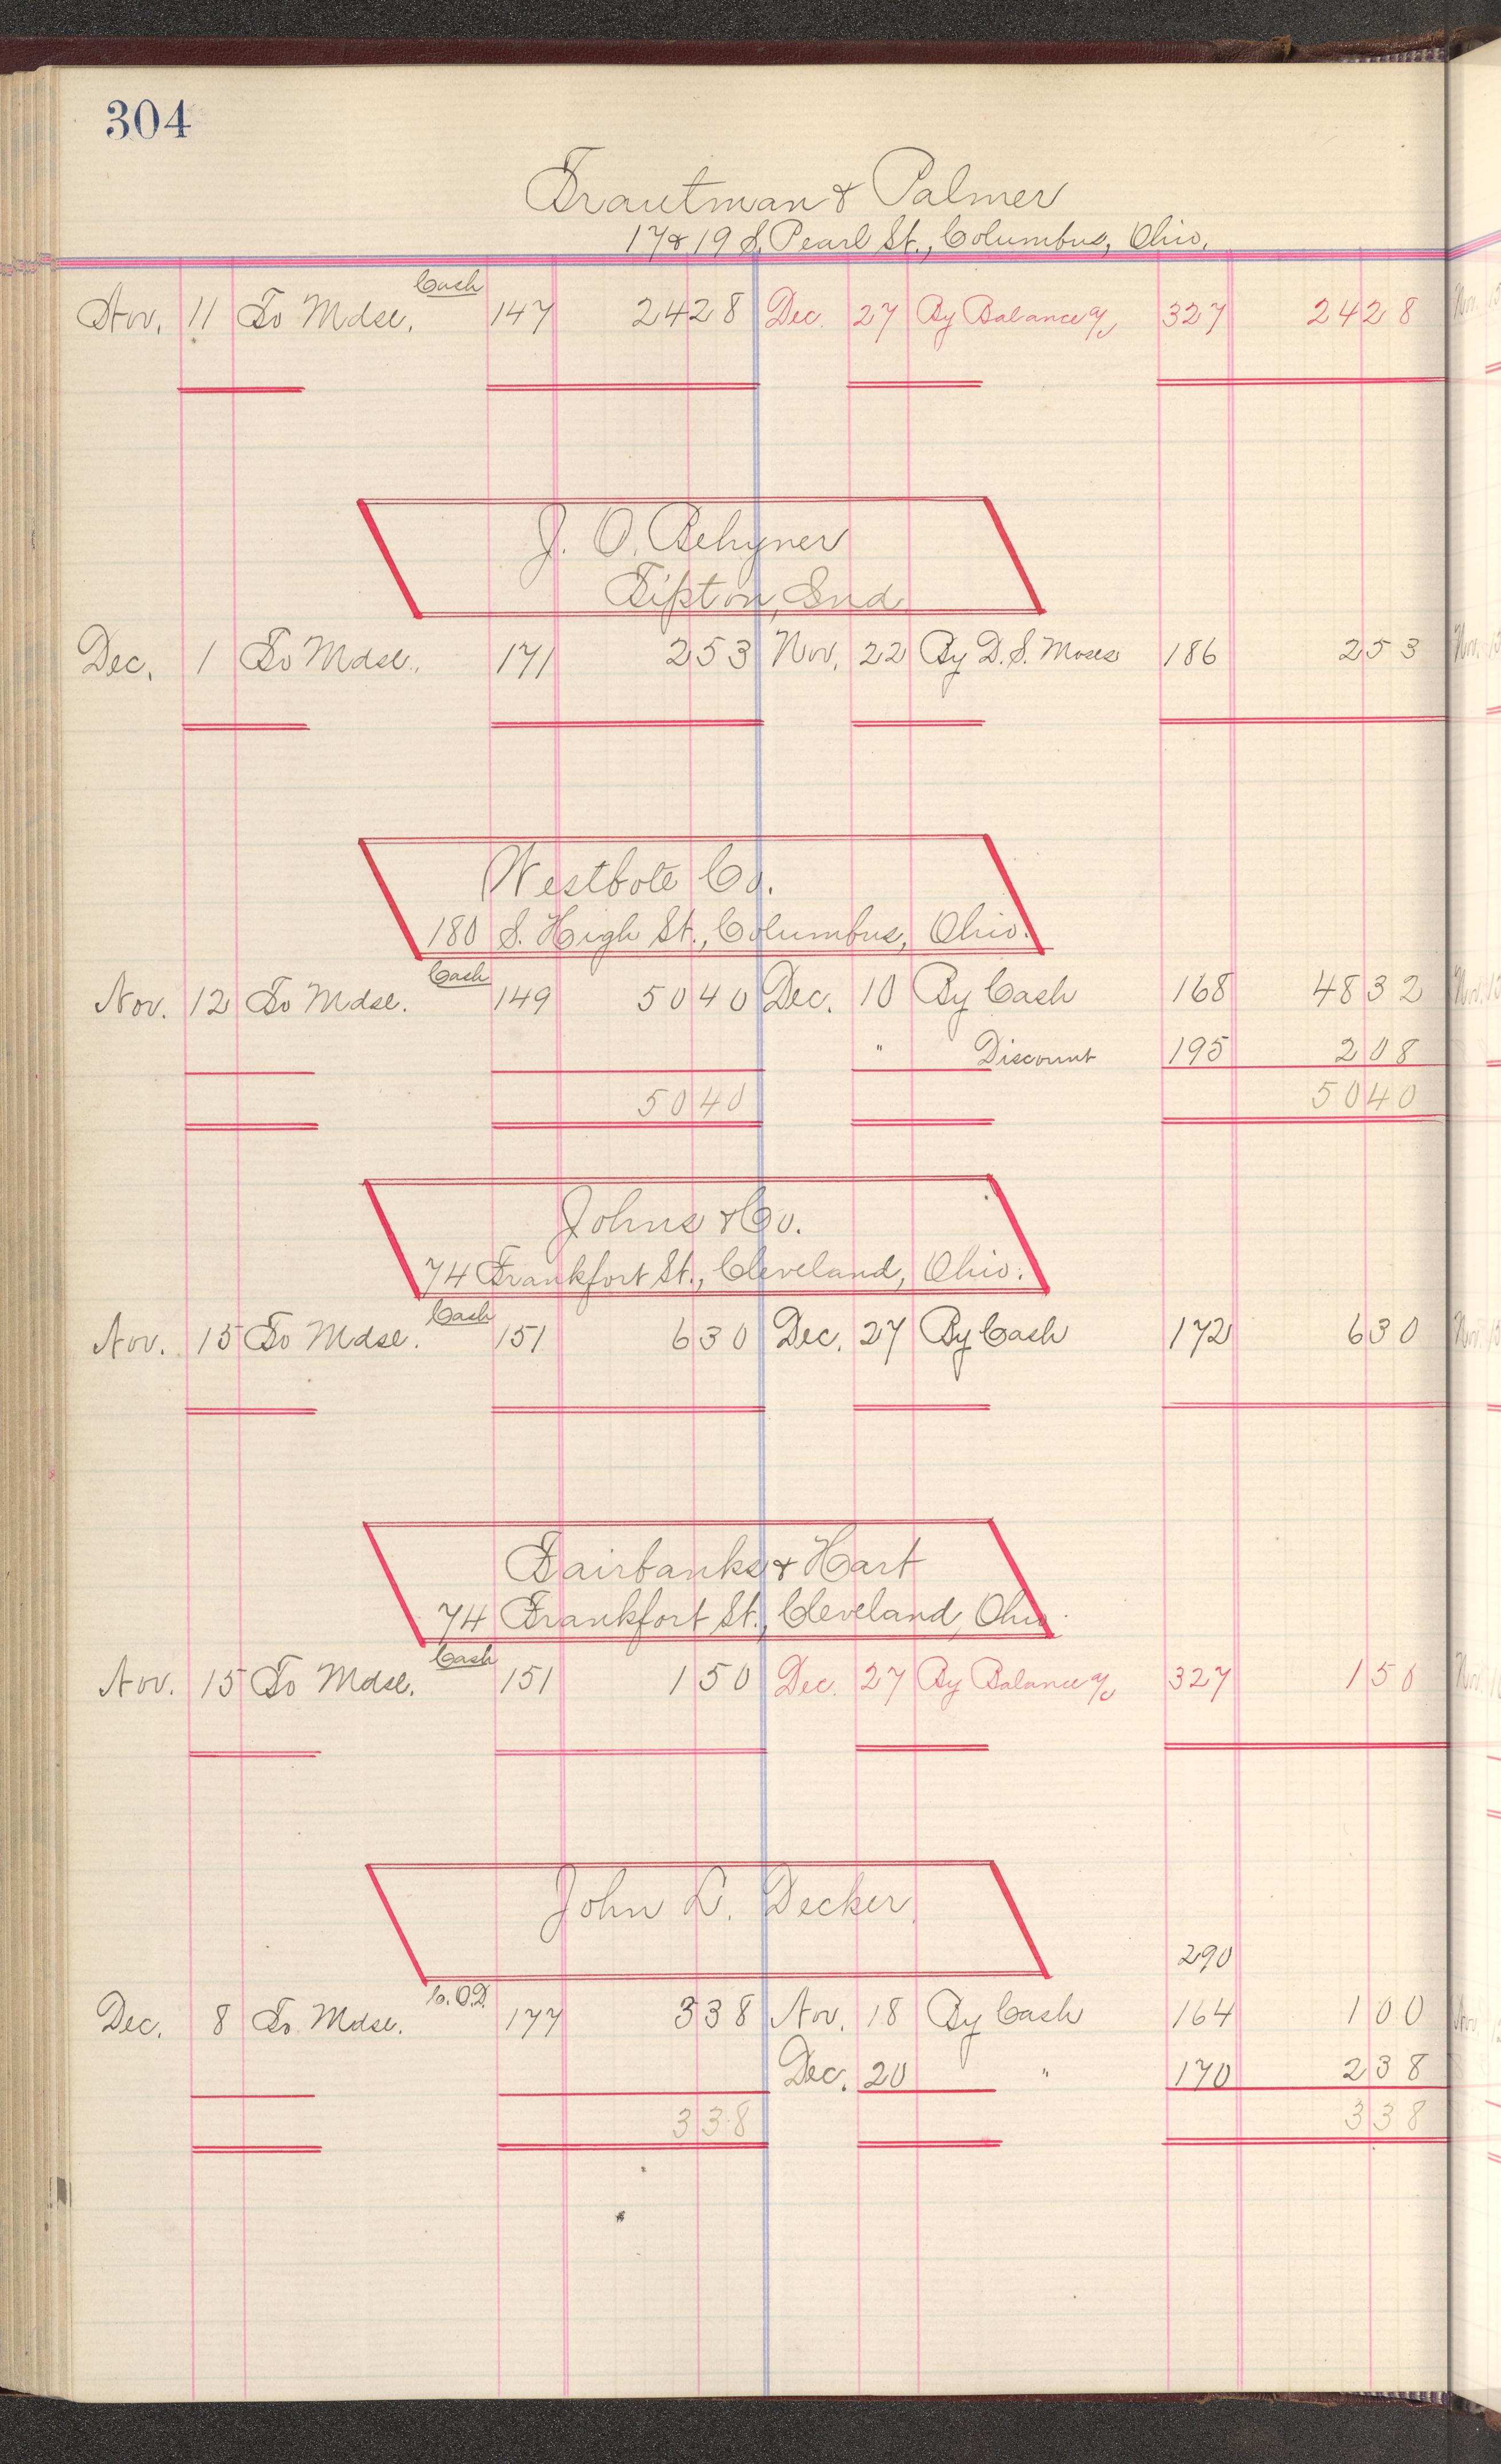 304
Trautman & Palmer
17 & 19 S. Pearl St., Columbus, Ohio.
Cash
Nov. 11 To Mdse. 147 24 28 Dec. 27 By Balance a/c 327 24 28
J. O. Behymer
Tipton, Ind
Dec. 1 To Mdse. 171 2 53 Nov. 22 By D. S. Moses 186 2 53
Westbote Co.
180 S. High St., Columbus, Ohio.
Cash
Nov. 12 To Mdse. 149 50 40 Dec. 10 By Cash 168 48 32
" Discount 195 2 08
50 40 50 40
Johns & Co.
74 Frankfort St., Cleveland, Ohio.
Cash
Nov. 15 To Mdse. 151 6 30 Dec. 27 By Cash 172 6 30
Fairbanks & Hart
74 Frankfort St., Cleveland, Ohio.
Cash
Nov. 15 To Mdse. 151 1 50 Dec. 27 By Balance a/c 327 1 50
John L. Decker
290
C.O.D.
Dec. 8 To Mdse. 177 3 38 Nov. 18 By Cash 164 1 00
Dec. 20 " 170 2 38
3 38 3 38